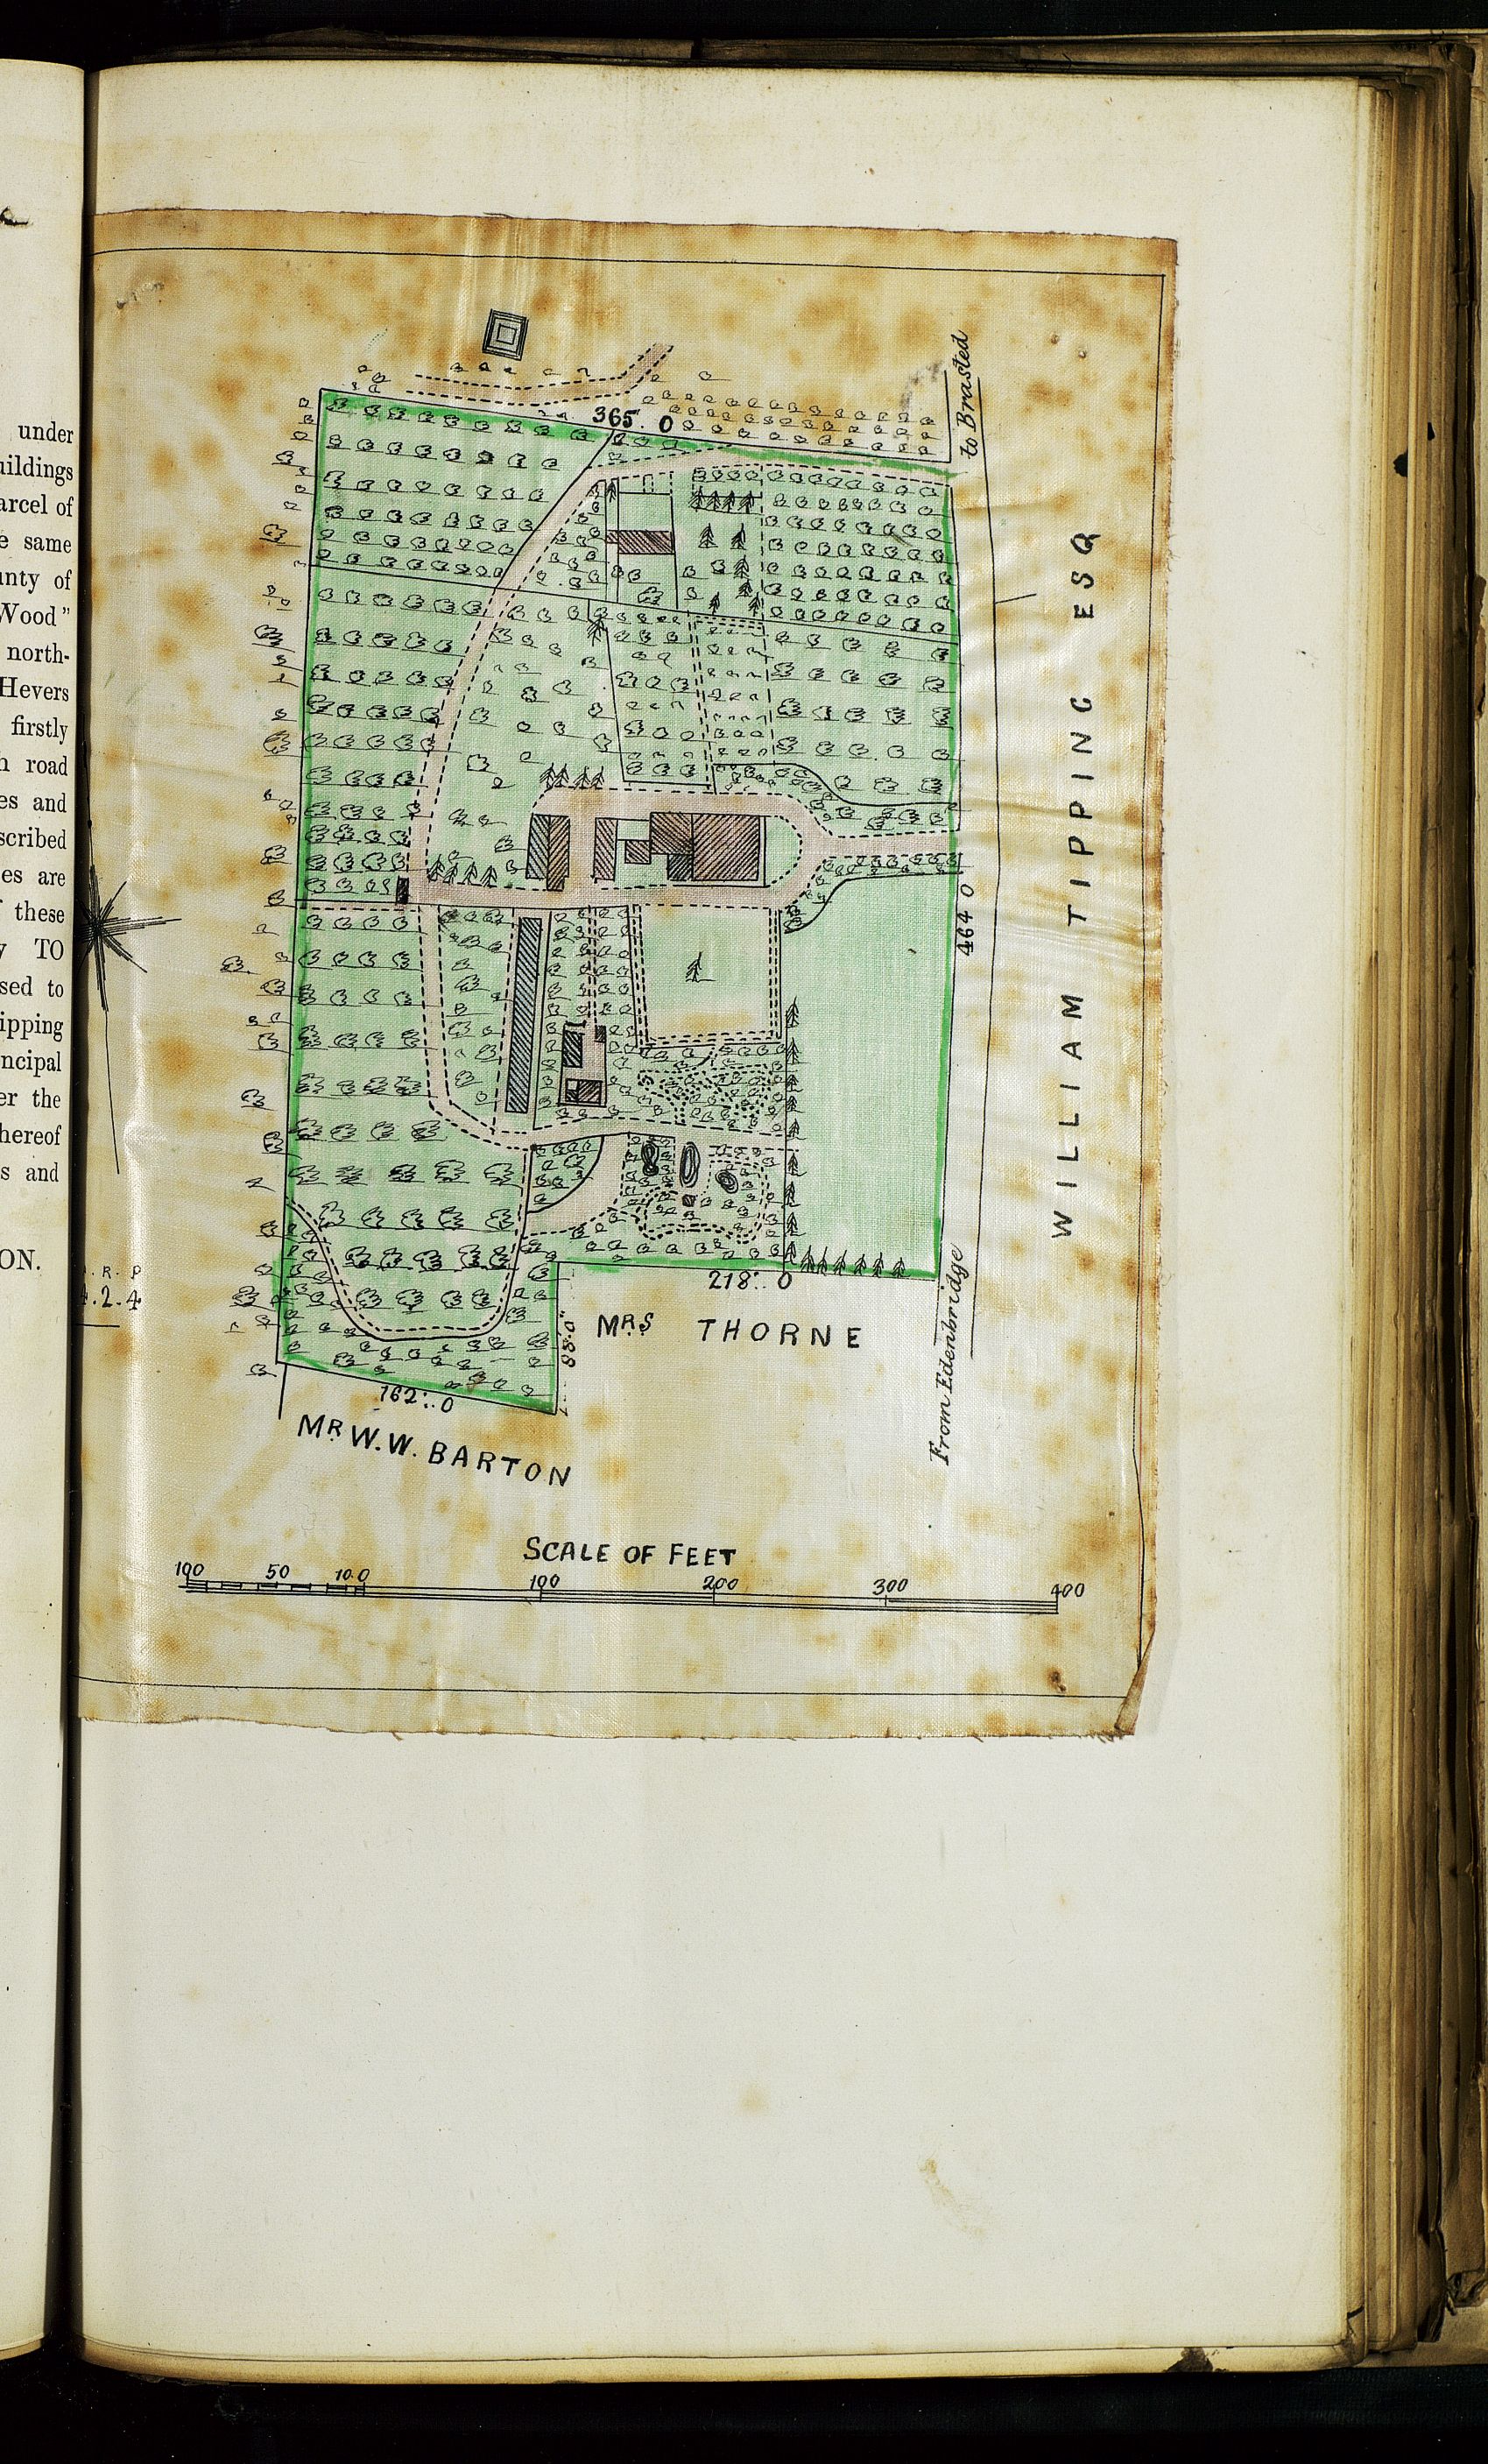 under
uildings
arcel of
e same
unty of
Wood"
north-
Hevers
firstly
h road
es and
scribed
es are
f these
y TO
sed to
ipping
ncipal
er the
hereof
s and
ON.
. R. P
4.2.4
365. 0
to Brasted
WILLIAM TIPPING ESQ
464 0
From Edenbridge
218:. 0
88.0"
MRS THORNE
162:. 0
MR W. W. BARTON
SCALE OF FEET
100 50 10 0 100 200 300 400